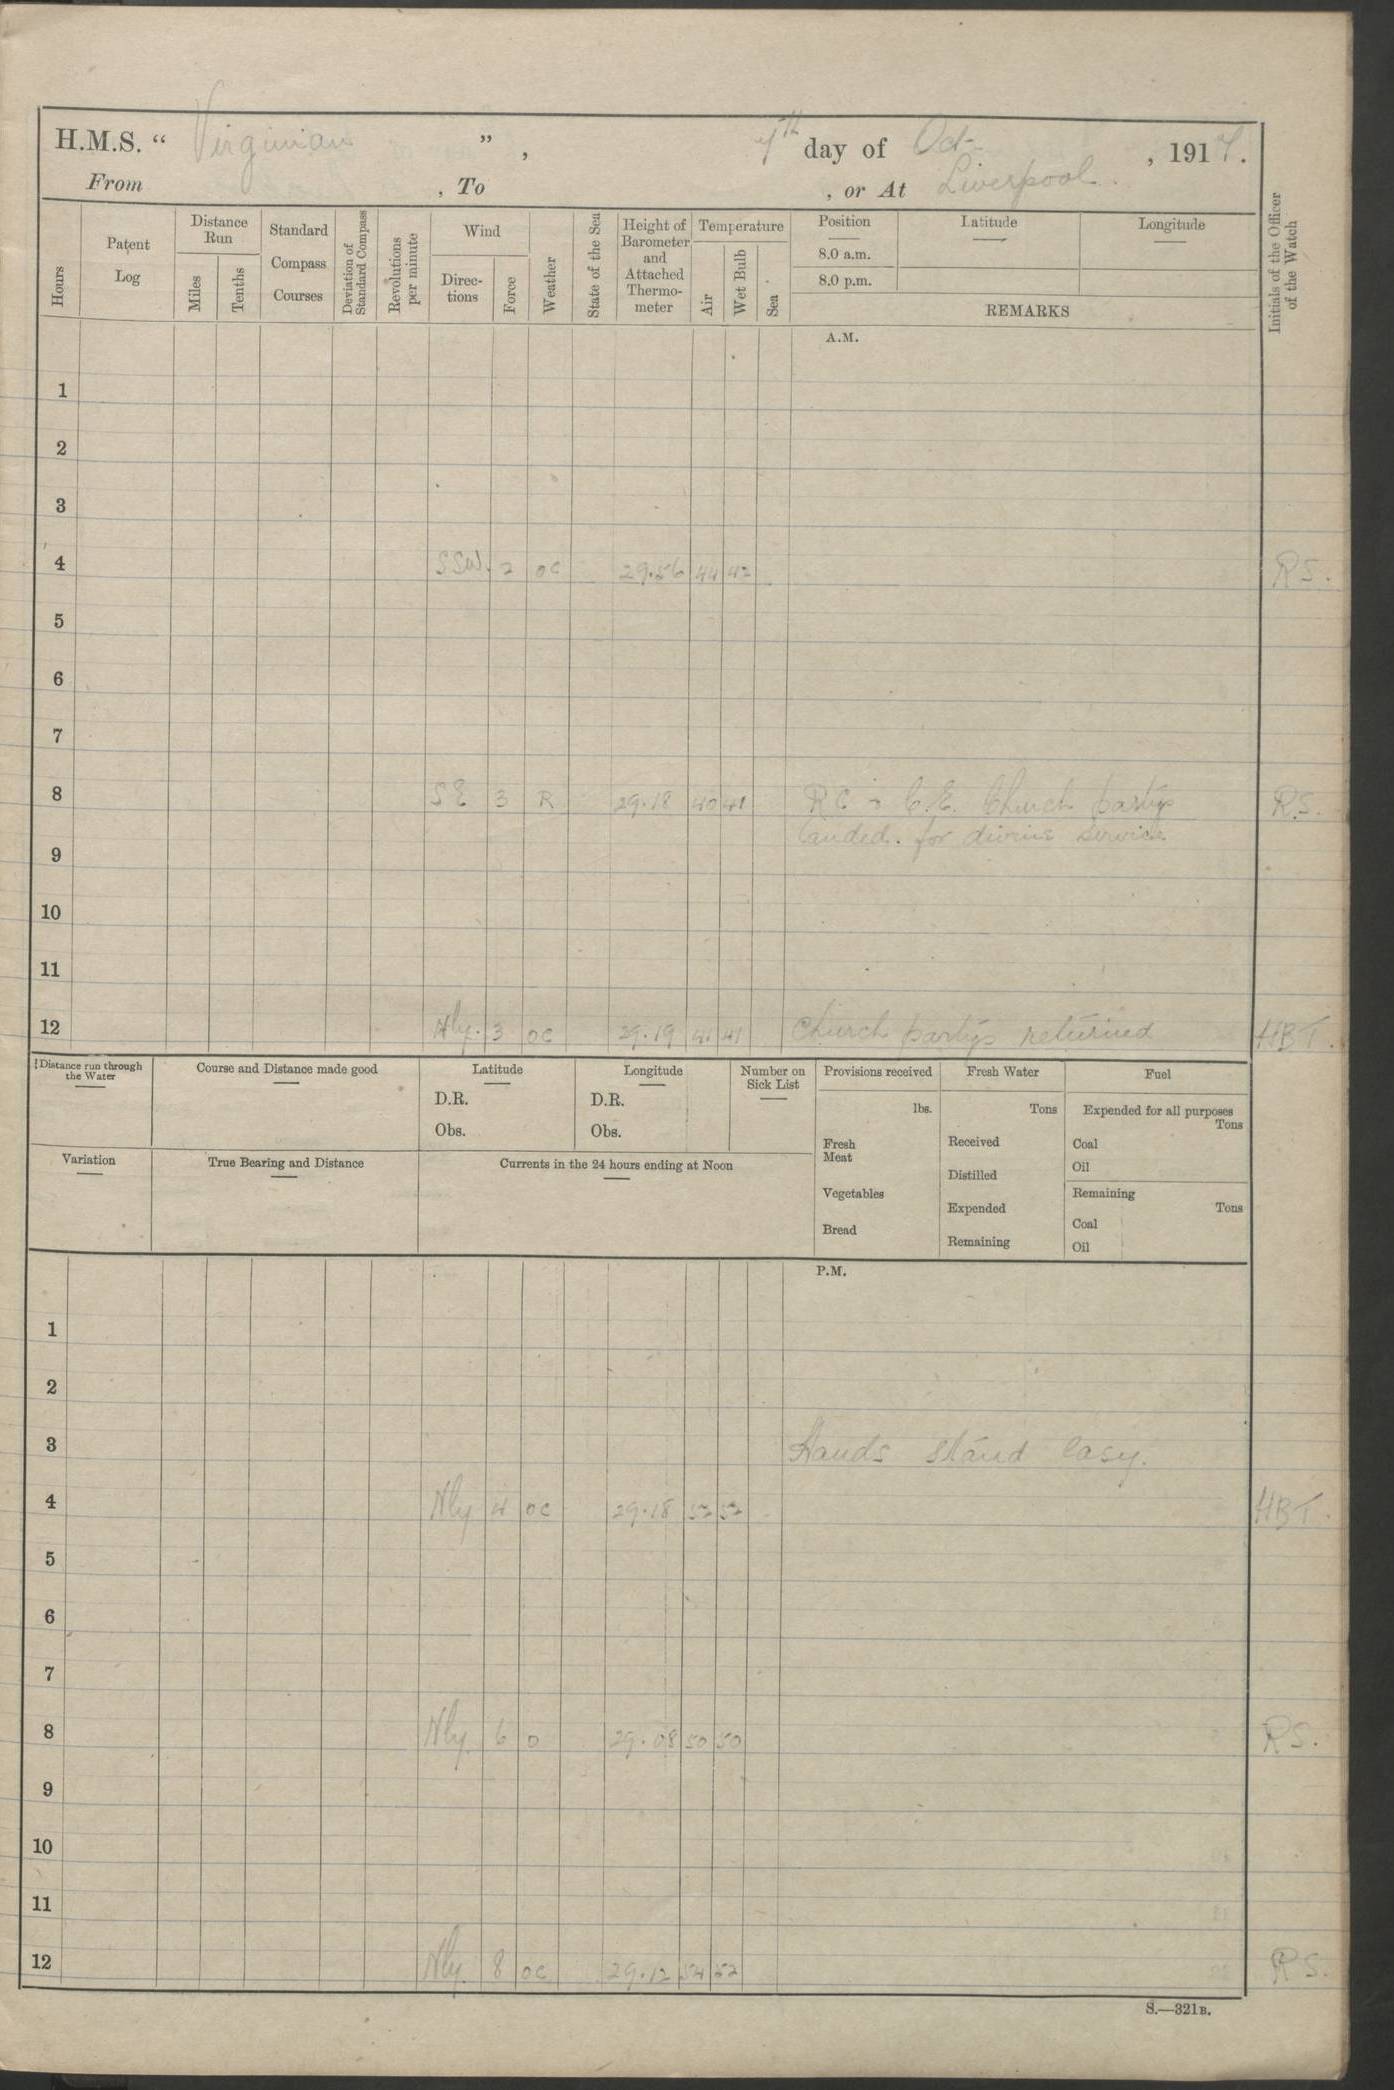 H.M.S. “ Virginian ” , 7th day of Oct- , 1917.
From , To , or At Liverpool.
Hours
Patent Log
Distance Run
Miles
Tenths
Standard Compass Courses
Deviation of Standard Compass
Revolutions per minute
Wind
Direc-tions
Force
Weather
State of the Sea
Height of Barometer and Attached Thermo-meter
Temperature
Air
Wet Bulb
Sea
Position
8.0 a.m.
8.0 p.m.
Latitude
Longitude
REMARKS
Initials of the Officer of the Watch
A.M.
1
2
3
4 SSW. 2 oc 29.56 44 42 RS.
5
6
7
8 SE 3 R 29.18 40 41 RC & C.E. Church partys RS.
landed. for divine Service
9
10
11
12 Nly. 3 oc 29.19 41 41 Church partys returned HBT.
Distance run through the Water
Course and Distance made good
Latitude
D.R.
Obs.
Longitude
D.R.
Obs.
Number on Sick List
Provisions received
lbs.
Fresh Meat
Vegetables
Bread
Fresh Water
Tons
Received
Distilled
Expended
Remaining
Fuel
Expended for all purposes
Tons
Coal
Oil
Remaining
Tons
Coal
Oil
Variation
True Bearing and Distance
Currents in the 24 hours ending at Noon
P.M.
1
2
3 Hands stand easy.
4 Nly 4 oc 29.18 52 52 HBT.
5
6
7
8 Nly. 6 o 29.08 50 50 RS.
9
10
11
12 Nly. 8 oc 29.12 54 52 RS.
S.—321B.